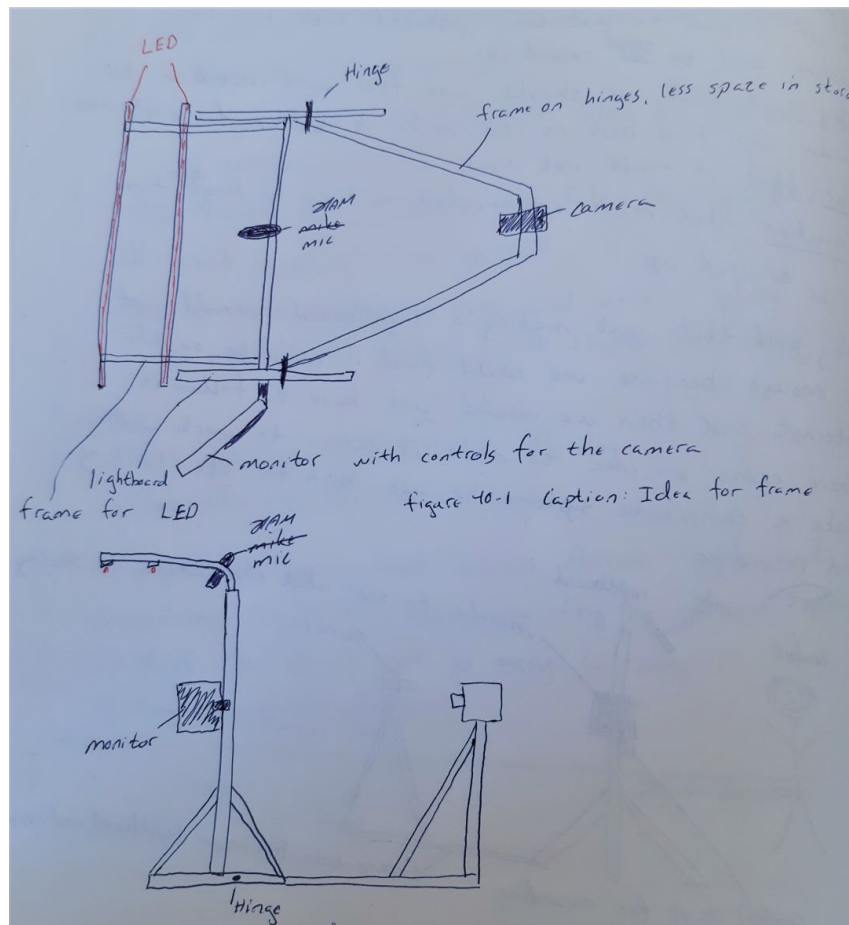 LED
Hinge
frame on hinges, less spaze in stora
camera
mike
mic
monitor with controls for the camera
lightboard
frame for LED
figure 40-1 Caption: Idea for frame
mike
mic
monitor
Hinge